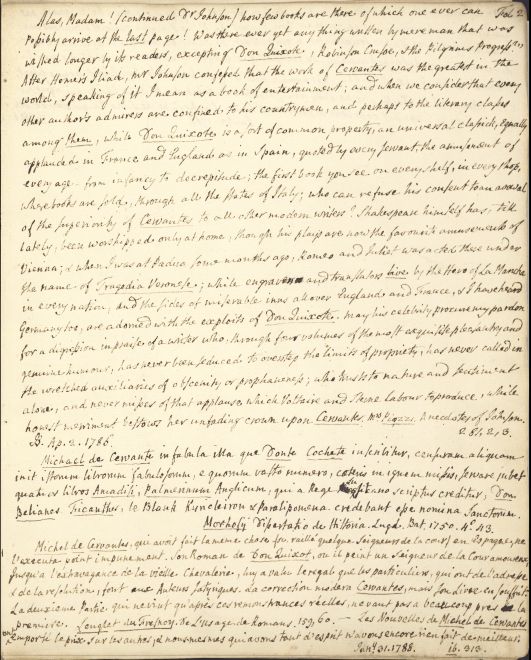 Alas, Madam! (continued Dr Johnson) how few books are there of which one ever can Fol.
possibly arrive at the last page! Was there ever yet any thing written by mere man that was
wished longer by its readers, excepting Don Quixote, Robinson Crusoe, & the Pilgrims Progress?"
After Homer's Iliad, Mr Johnson confessed that the work of Cervantes was the greatest in the
world, speaking of it I mean as a book of entertainment; and when we consider that every
other author's admirers are confined to his countrymen, and perhaps to the literary classes
among them, while Don Quixote is a sort of common property, an universal classick, equally
applauded in France and England as in Spain, quoted by every servant, the amusement of
every age from infancy to decrepitude; the first book you see on every shelf, in every shop,
where books are sold, through all the states of Italy; who can refuse his consent to an avowal
of the superiority of Cervantes to all other modern writers? Shakespeare himself has, till
lately, been worshipped only at home, though his plays are now the favourite amusements of
Vienna; & when I was at Padua some months ago, Romeo and Juliet was acted there under
the name of Tragedia Veronese; while engravers and translators live by the Hero of La Mancha
in every nation, and the sides of miserable inns all over England and France, & I have heard
Germany too, are adorned with the exploits of Don Quixote. May his celebrity procure my pardon
for a digression in praise of a writer who, through four volumes of the most exquisite pleasantry and
genuine humour, has never been seduced to overstep the limits of propriety, has never called in
the wretched auxiliaries of obscenity or prophaneness; who trusts to nature and sentiment
alone, and never misses of that applause which Voltaire and Sterne labour to produce, while
honest merriment bestows her unfading crown upon Cervantes. Mrs Piozzi, Anecdotes of Johnson.
Ap. 2. 1786. 281, 2, 3.
Michael de Cervante in fabula sua que Donte Cochete inscribitur, censuram aliquam
init istorum librorum fabulosorum, e quorum vasto numero, cæteris in ignem missis, servare jubet
quatuor libros Amadisi, Palmerinum Anglicum, qui a Rege scriptus creditur, Don
Belianos, Tiranthus, le Blank Kyrieleison & Paralipomena credebant esse nomina Sanctorum.
Morhofij Dissertatio de Historia. Lugd. Bat. 1750. 4o. 43.
Michel de Cervantes, qui avoit fait la meme chose (sc. raillé quelque Seigneur de la cour) en Espagne, ne
l'executa point impunement. Son Roman de Don Quixot, ou il peint un Seigneur de la Cour amoureux
jusqu'a l'extravagance de la vieille Chevalerie, luy a valu le regal que les particuliers, qui ont de l'adresse
& de la resolution, font aux Auteurs Satyriques. La correction modera Cervantes, mais son Livre en souffrit.
La deuxieme Partie qui ne vint qu'après ces remonstrances réelles, ne vaut pas a beaucoup pres la
premiere. Lenglet du Fresnoy. de L'usage de Romans. 159, 60. — Les Nouvelles de Michel de Cervantes
ont emporté le prix sur les autres, & nous mesmes qui avons tout d'esprit n'avons encore rien fait de meilleur.
Jany. 31. 1788. ib. 313.